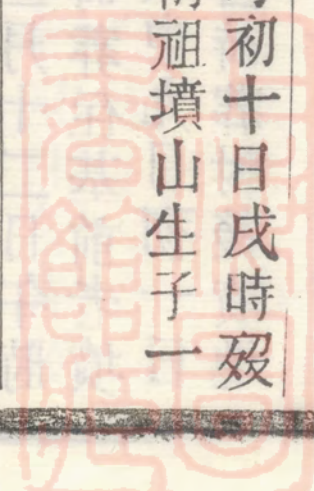 初十日戌時歿
祖墳山生子一